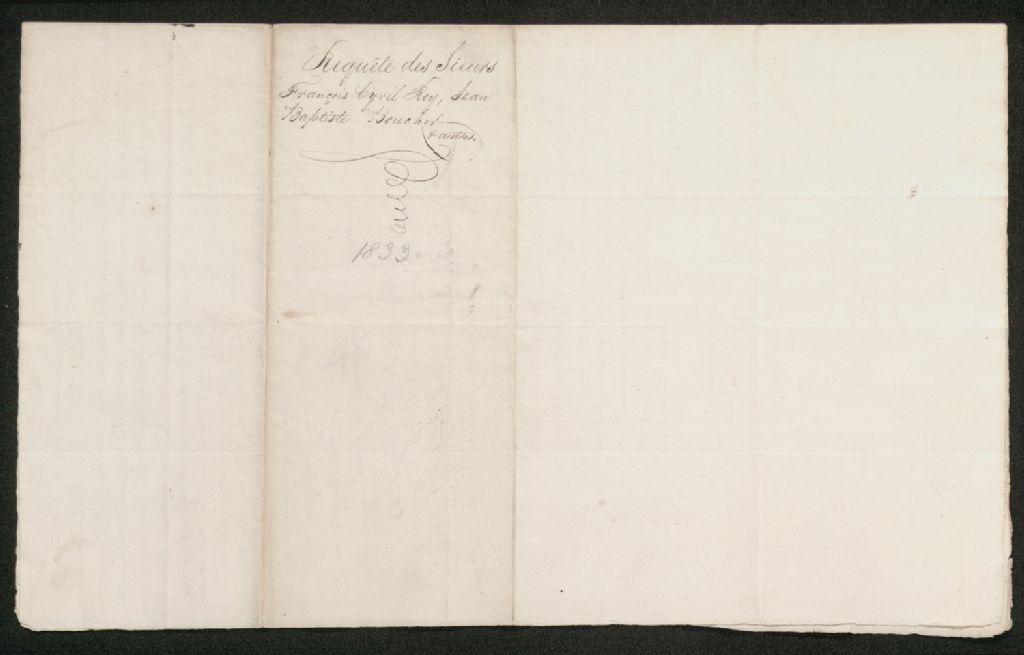 Requête des Sieurs
François Cyril Roy, Jean
Baptiste Boucher
& autres.
1833